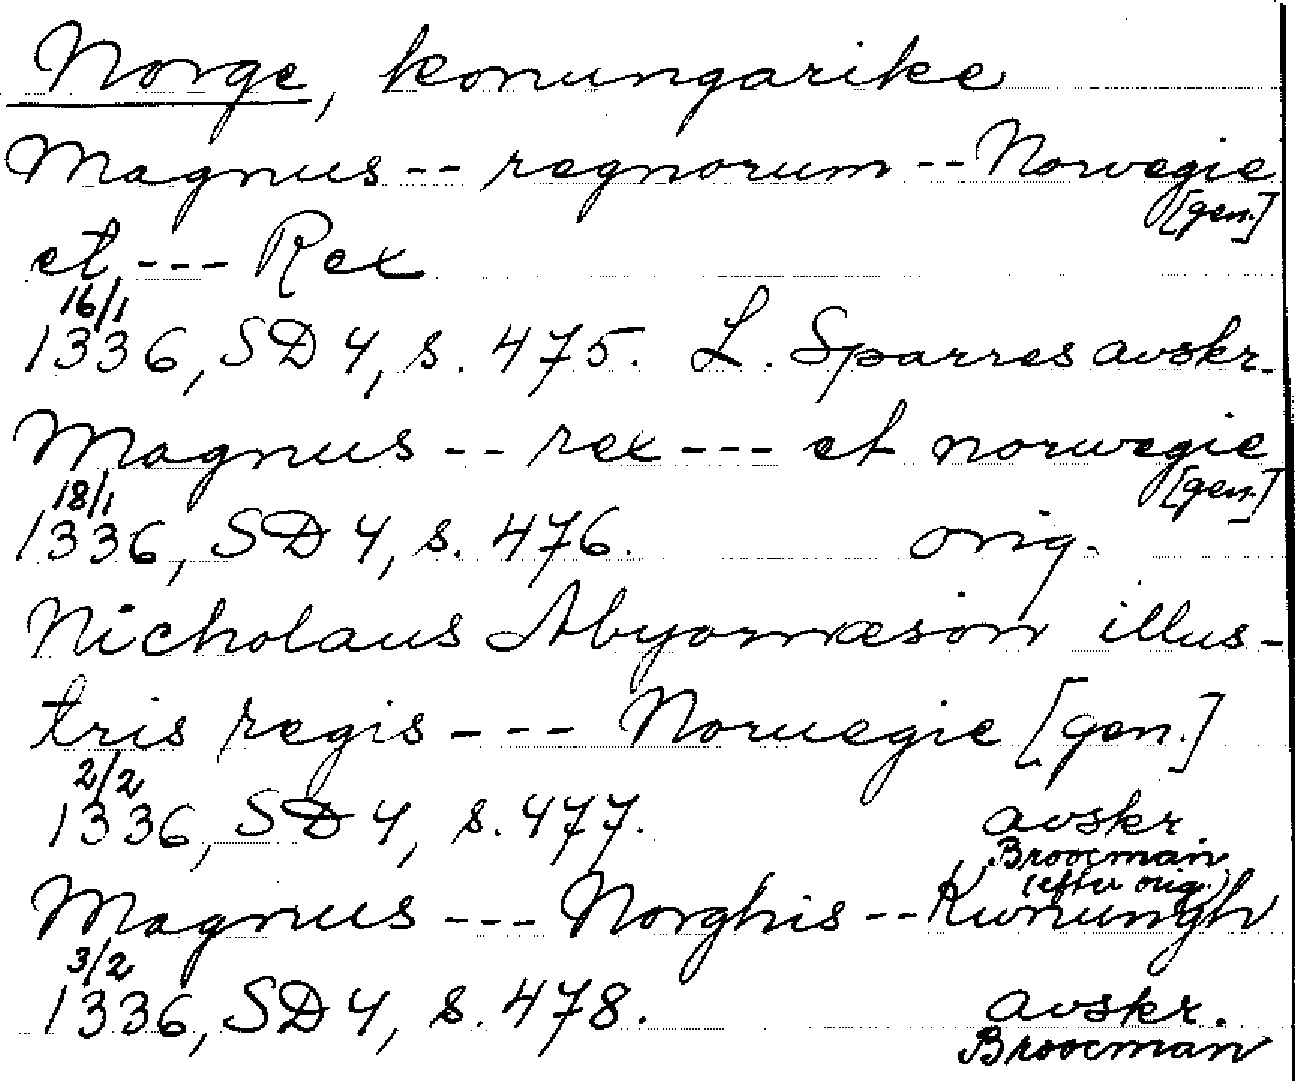 Norge, konungarike
Magnus -- regnorum -- Norwegie
[gen.]
et --- Rex
16/1
1336, SD 4, s. 475. L. Sparres avskr.
Magnus -- rex --- et norwegie
[gen.]
18/1
1336, SD 4, s. 476. orig.
Nicholaus Abyornæson illus-
tris regis --- Noruegie [gen.]
2/2
1336, SD 4, s. 477. avskr.
Broocman
(efter orig.)
Magnus --- Norghis -- Kununghr
3/2
1336, SD 4, s. 478. avskr.
Broocman